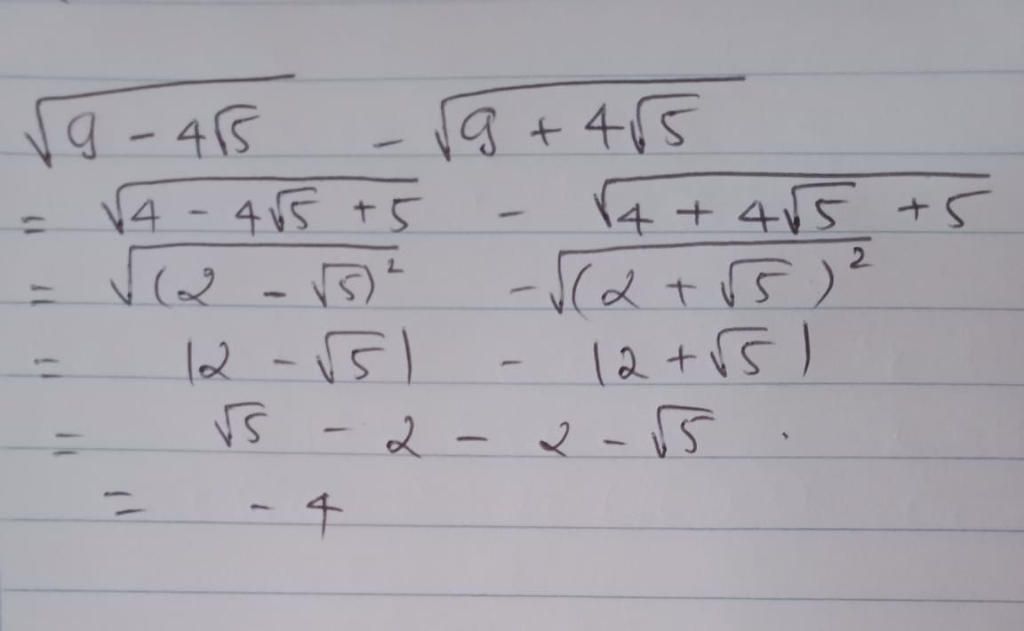 √(9 - 4√5) - √(9 + 4√5)
= √(4 - 4√5 + 5) - √(4 + 4√5 + 5)
= √((2 - √5)²) - √((2 + √5)²)
= |2 - √5| - |2 + √5|
= √5 - 2 - 2 - √5 .
= - 4